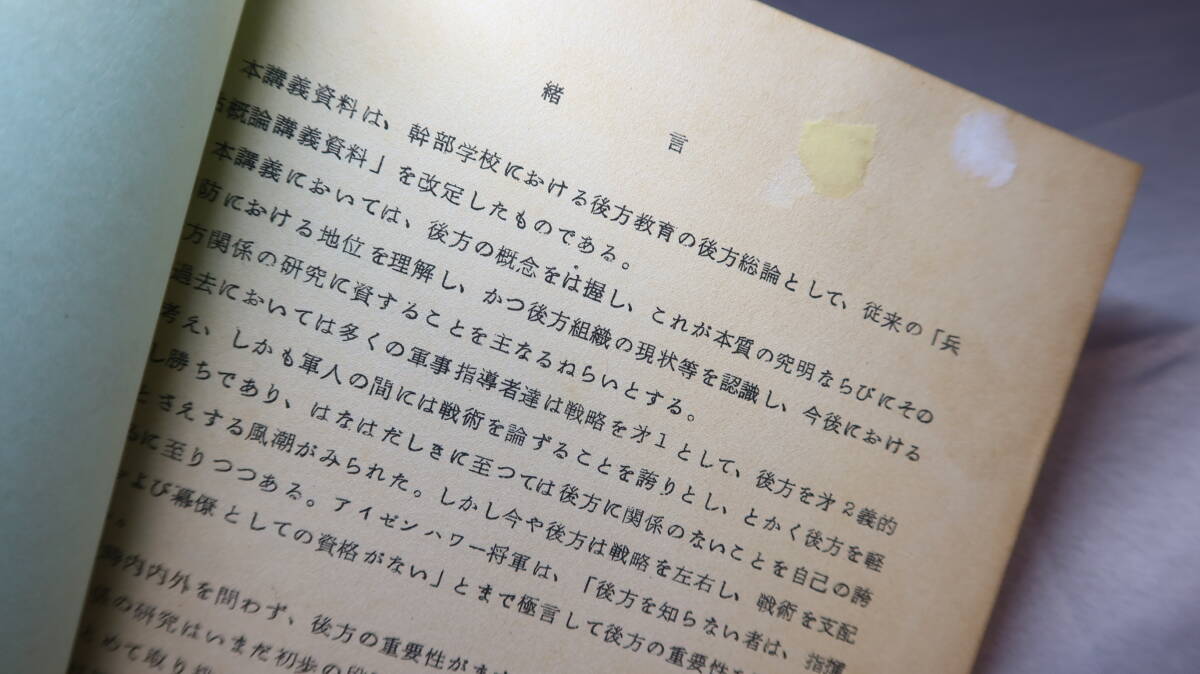 緒言
本講義資料は、幹部学校における後方教育の後方総論として、従来の「兵
概論講義資料」を改定したものである。
本講義においては、後方の概念をは握し、これが本質の究明ならびにその
防における地位を理解し、かつ後方組織の現状等を認識し、今後における
方関係の研究に資することを主なるねらいとする。
過去においては多くの軍事指導者達は戦略を才1として、後方を才2義的
考え、しかも軍人の間には戦術を論ずることを誇りとし、とかく後方を軽
し勝ちであり、はなはだしきに至つては後方に関係のないことを自己の誇
とさえする風潮がみられた。しかし今や後方は戦略を左右し、戦術を支配
に至りつつある。アイゼンハワー将軍は、「後方を知らない者は、指揮
および幕僚としての資格がない」とまで極言して後方の重要性を
内外を問わず、後方の重要性が
の研究はいまだ初歩の段
めて取り